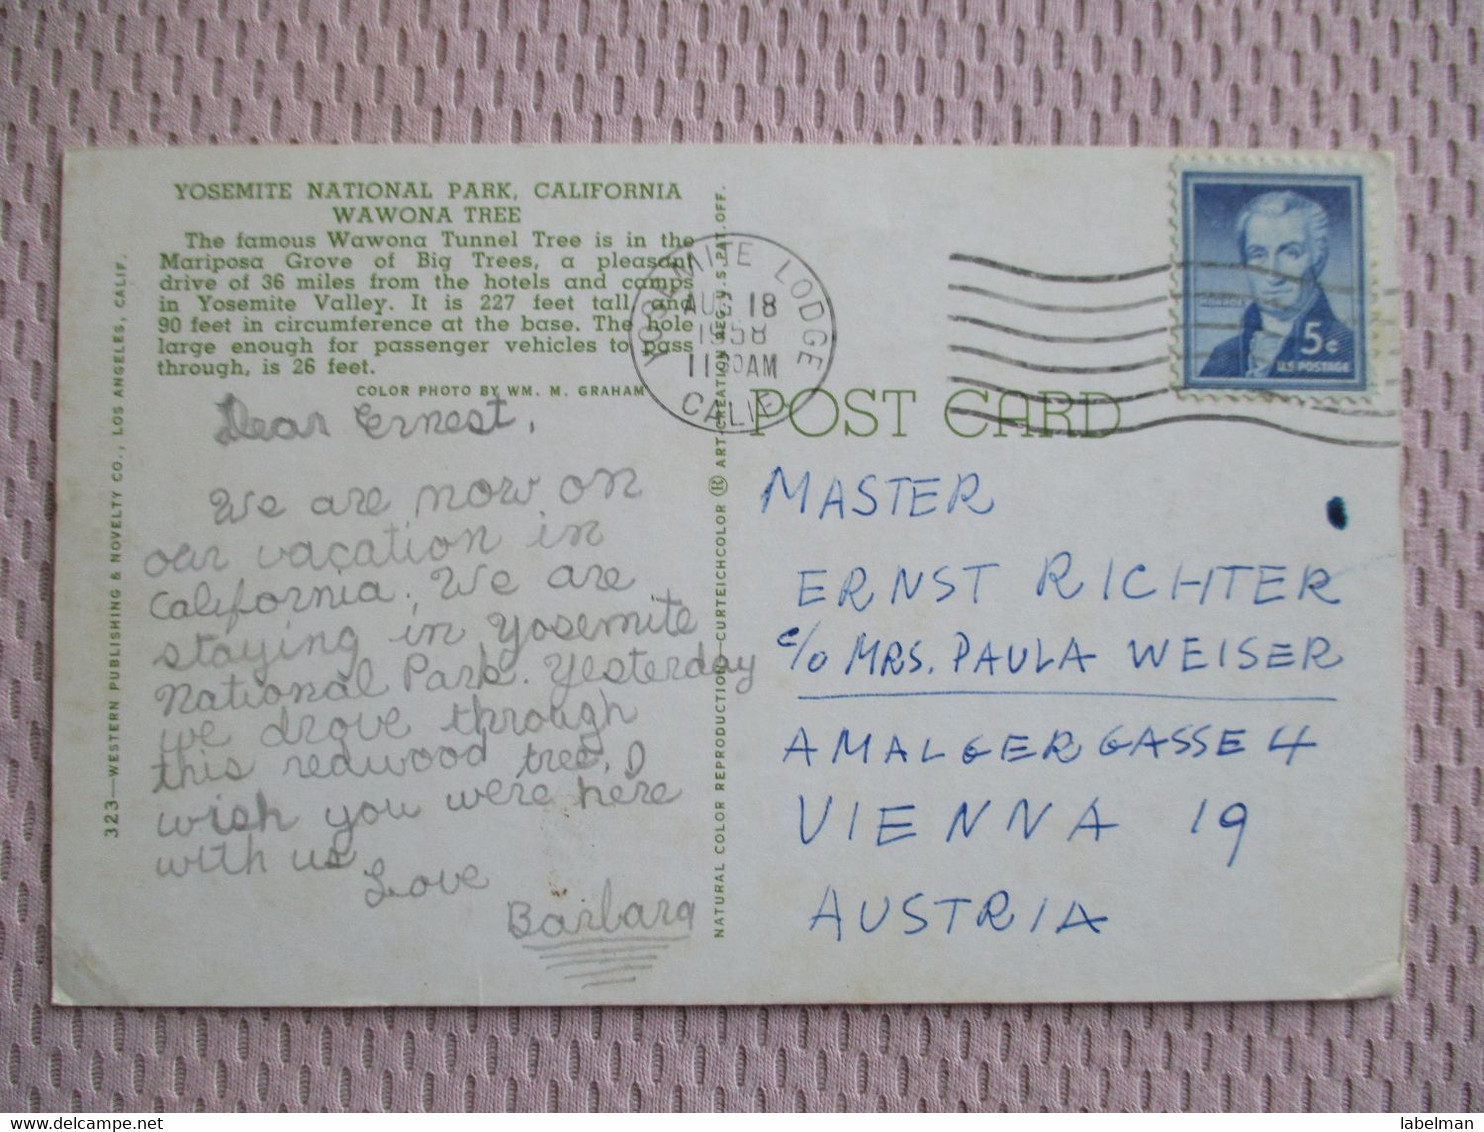 YOSEMITE NATIONAL PARK, CALIFORNIA
WAWONA TREE
The famous Wawona Tunnel Tree is in the
Mariposa Grove of Big Trees, a pleasant
drive of 36 miles from the hotels and camps
in Yosemite Valley. It is 227 feet tall, and
90 feet in circumference at the base. The hole
large enough for passenger vehicles to pass
through, is 26 feet.
COLOR PHOTO BY WM. M. GRAHAM
Dear Ernest,
We are now on
our vacation in
California. We are
staying in Yosemite
National Park. Yesterday
we drove through
this redwood tree. I
wish you were here
with us
Love
Barbara
323—WESTERN PUBLISHING & NOVELTY CO., LOS ANGELES, CALIF.
NATURAL COLOR REPRODUCTION—CURTEICHCOLOR ® ART-CREATION REG. U.S. PAT. OFF.
YOSEMITE LODGE
AUG 18
1958
11 AM
CALIF
MONROE
5¢
U.S. POSTAGE
POST CARD
MASTER
ERNST RICHTER
c/o MRS. PAULA WEISER
AMALGERGASSE 4
VIENNA 19
AUSTRIA
www.delcampe.net
labelman